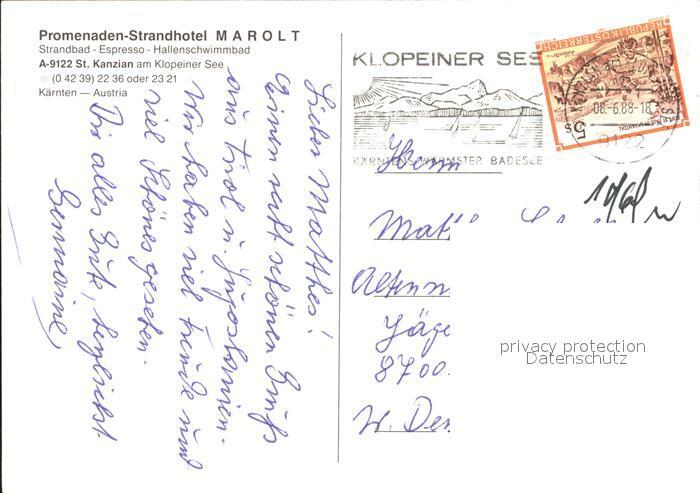 Promenaden-Strandhotel MAROLT
Strandbad - Espresso - Hallenschwimmbad
A-9122 St. Kanzian am Klopeiner See
(0 42 39) 22 36 oder 23 21
Kärnten — Austria
Lieber Matthes!
Einen recht schönen Gruß
aus Tirol u. Jugoslawien.
Wir haben viel Freude und
viel Schönes gesehen.
Dir alles Gute, herzlichst
Germaine
KLOPEINER SEE
KÄRNTENS WÄRMSTER BADESEE
REPUBLIK ÖSTERREICH
5s
08.-6.88-18
9122
Herrn
Mat
Altenn
Jäge
8700
W. Deu
privacy protection
Datenschutz